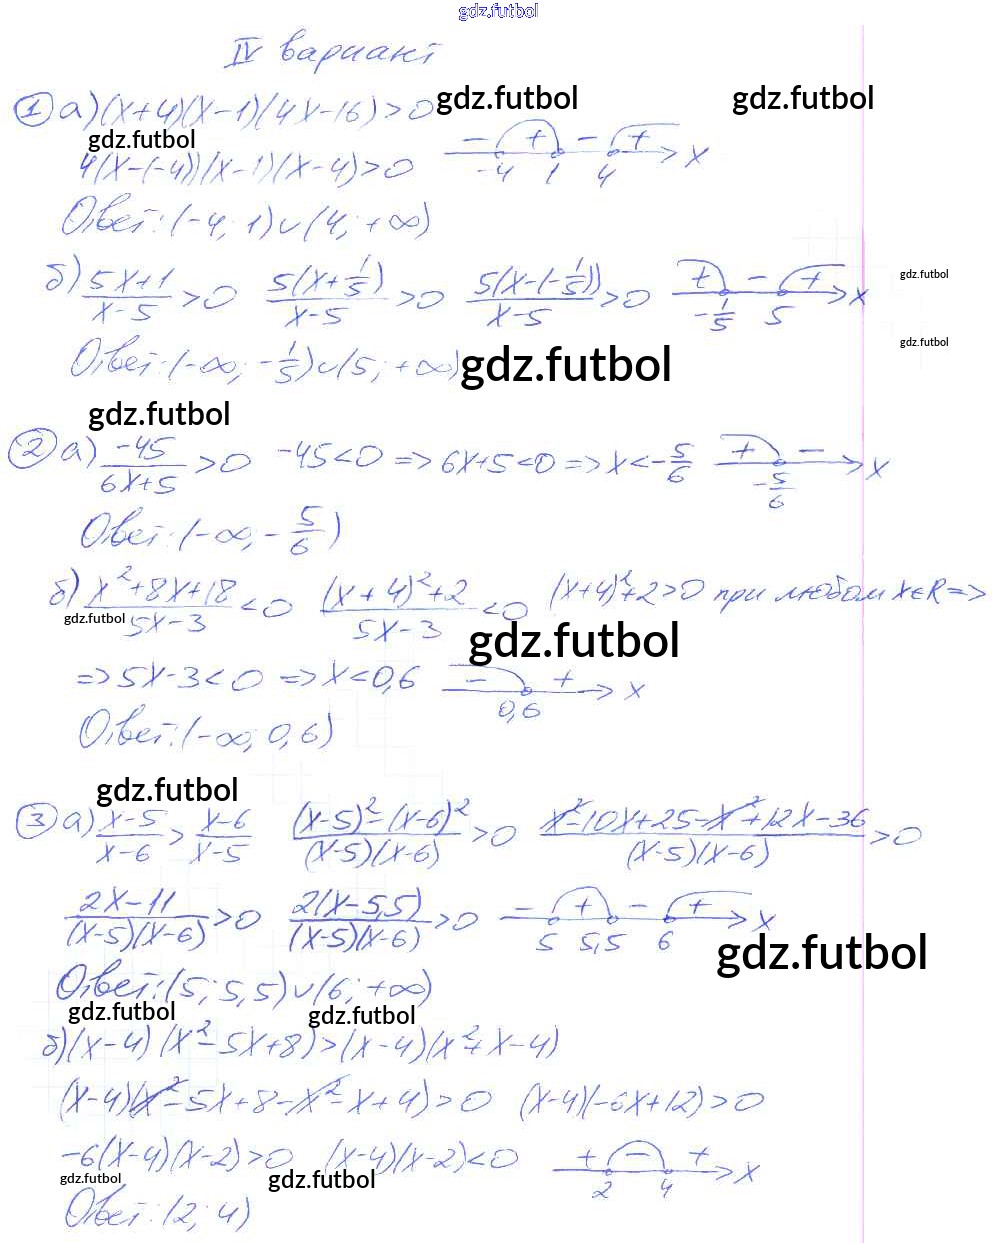 gdz.futbol
IV вариант
① а) (x+4)(x-1)(4x-16)>0 gdz.futbol gdz.futbol
gdz.futbol
4(x-(-4))(x-1)(x-4)>0 - + - + -4 1 4 x
Ответ: (-4; 1)∪(4; +∞)
б) (5x+1)/(x-5)>0 5(x+1/5)/(x-5)>0 5(x-(-1/5))/(x-5)>0 + - + -1/5 5 x gdz.futbol
gdz.futbol
Ответ: (-∞; -1/5)∪(5; +∞) gdz.futbol
gdz.futbol
② а) -45/(6x+5)>0 -45<0 => 6x+5<0 => x<-5/6 + - -5/6 x
Ответ: (-∞; -5/6)
б) (x²+8x+18)/(5x-3)<0 ((x+4)²+2)/(5x-3)<0 (x+4)²+2>0 при любом x∈R =>
gdz.futbol gdz.futbol
=> 5x-3<0 => x<0,6 - + 0,6 x
Ответ: (-∞; 0,6)
gdz.futbol
③ а) (x-5)/(x-6)>(x-6)/(x-5) ((x-5)²-(x-6)²)/((x-5)(x-6))>0 (x²-10x+25-x²+12x-36)/((x-5)(x-6))>0
(2x-11)/((x-5)(x-6))>0 2(x-5,5)/((x-5)(x-6))>0 - + - + 5 5,5 6 x
gdz.futbol
Ответ: (5; 5,5)∪(6; +∞)
gdz.futbol gdz.futbol
б) (x-4)(x²-5x+8)>(x-4)(x²+x-4)
(x-4)(x²-5x+8-x²-x+4)>0 (x-4)(-6x+12)>0
-6(x-4)(x-2)>0 (x-4)(x-2)<0 + - + 2 4 x
gdz.futbol gdz.futbol
Ответ: (2; 4)